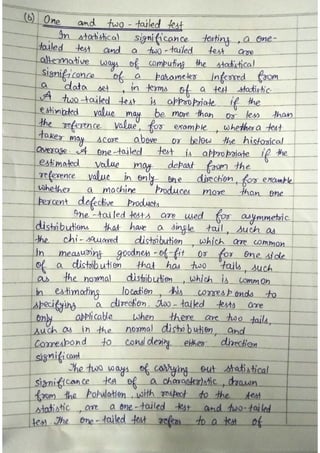 (b) One and two-tailed test
In statistical significance testing, a one-
tailed test and a two-tailed test are
alternative ways of computing the statistical
significance of a parameter inferred from
a data set, in terms of a test statistic
A two-tailed test is appropriate if the
estimated value may be more than or less than
the reference value, for example, whether a test
taker may score above or below the historical
average. A one-tailed test is appropriate if the
estimated value may depart from the
reference value in only one direction, for example,
whether a machine produces more than one
percent defective products
One-tailed tests are used for asymmetric
distributions that have a single tail, such as
the chi-squared distribution, which are common
in measuring goodness-of-fit or for one side
of a distribution that has two tails, such
as the normal distribution, which is common
in estimating location this corresponds to
specifying a direction. Two-tailed tests are
only applicable when there are two tails,
such as in the normal distribution, and
correspond to considering either direction
significant
The two ways of carrying out statistical
significance test of a characteristic, drawn
from the population, with respect to the test
statistic, are a one-tailed test and two-tailed
test. The one-tailed test refers to a test of